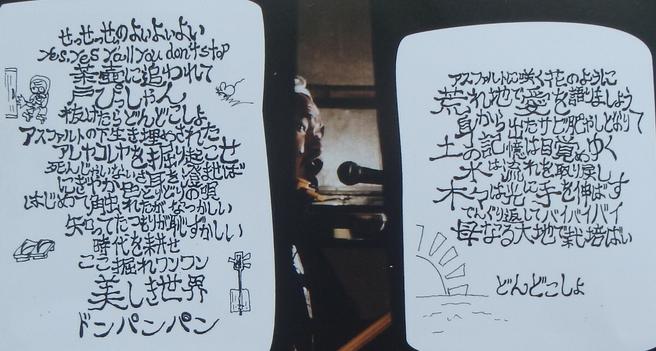 せっせっせのよいよいよい
Yes, Yes Y'all you don't stop
茶壷に追われて
戸ぴっしゃん
抜けたらどんどこしょ
アスファルトの下生き埋めやされた
アレヤコレヤを掘り起こせ
死んじゃいない耳を澄ませば
にぎやか色とりどりの唄
はじめて出会れたがなつかしい
知ってたつもりが恥ずかしい
時代を耕せ
ここ掘れワンワン
美しき世界
ドンパンパン
アスファルトに咲くはなのように
荒れ地で愛を語りましょう
身から出たサビ肥やしとなりて
土の記憶は目覚めゆく
水は流れを取り戻し
木々は光に手を伸ばす
でんぐり返してバイバイバイ
母なる大地で栽培ばい
どんどこしょ